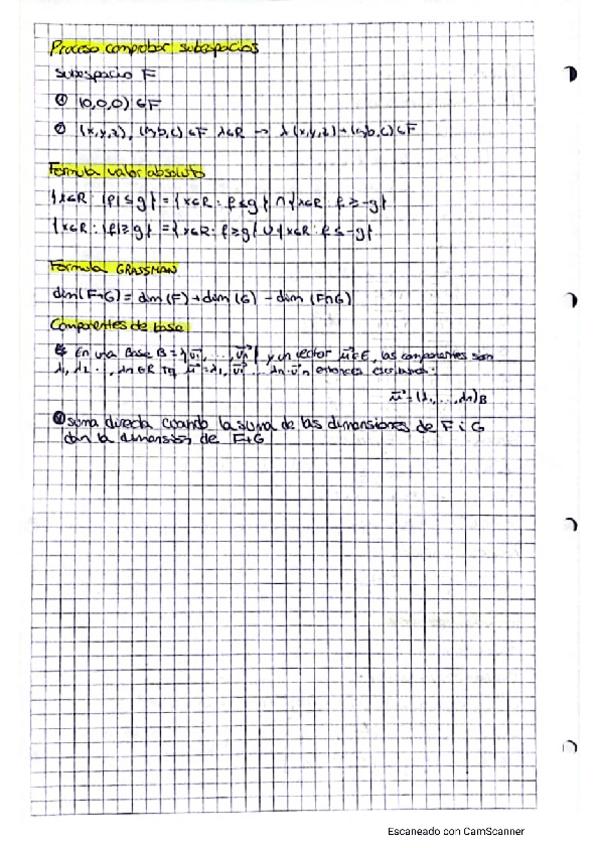 Proceso comprobar subespacios
Subespacio F
① (0,0,0) ∈ F
② (x,y,z), (a,b,c) ∈ F λ∈R → λ(x,y,z)+(a,b,c) ∈ F
Formula valor absoluto
{x∈R: |f| ≤ g} = {x∈R: f ≤ g} ∩ {x∈R: f ≥ -g}
{x∈R: |f| ≥ g} = {x∈R: f ≥ g} ∪ {x∈R: f ≤ -g}
Formula GRASSMAN
dim(F+G) = dim(F) + dim(G) - dim(F∩G)
Componentes de base
En una Base B = {v1, ..., vn} y un vector u ∈ E, las componentes son
λ1, λ2 ..., λn ∈ R Tq u = λ1, v1 ... λn·vn entonces escribimos:
u = (λ1, ..., λn)B
suma directa cuando la suma de las dimensiones de F i G
dan la dimension de F+G
Escaneado con CamScanner